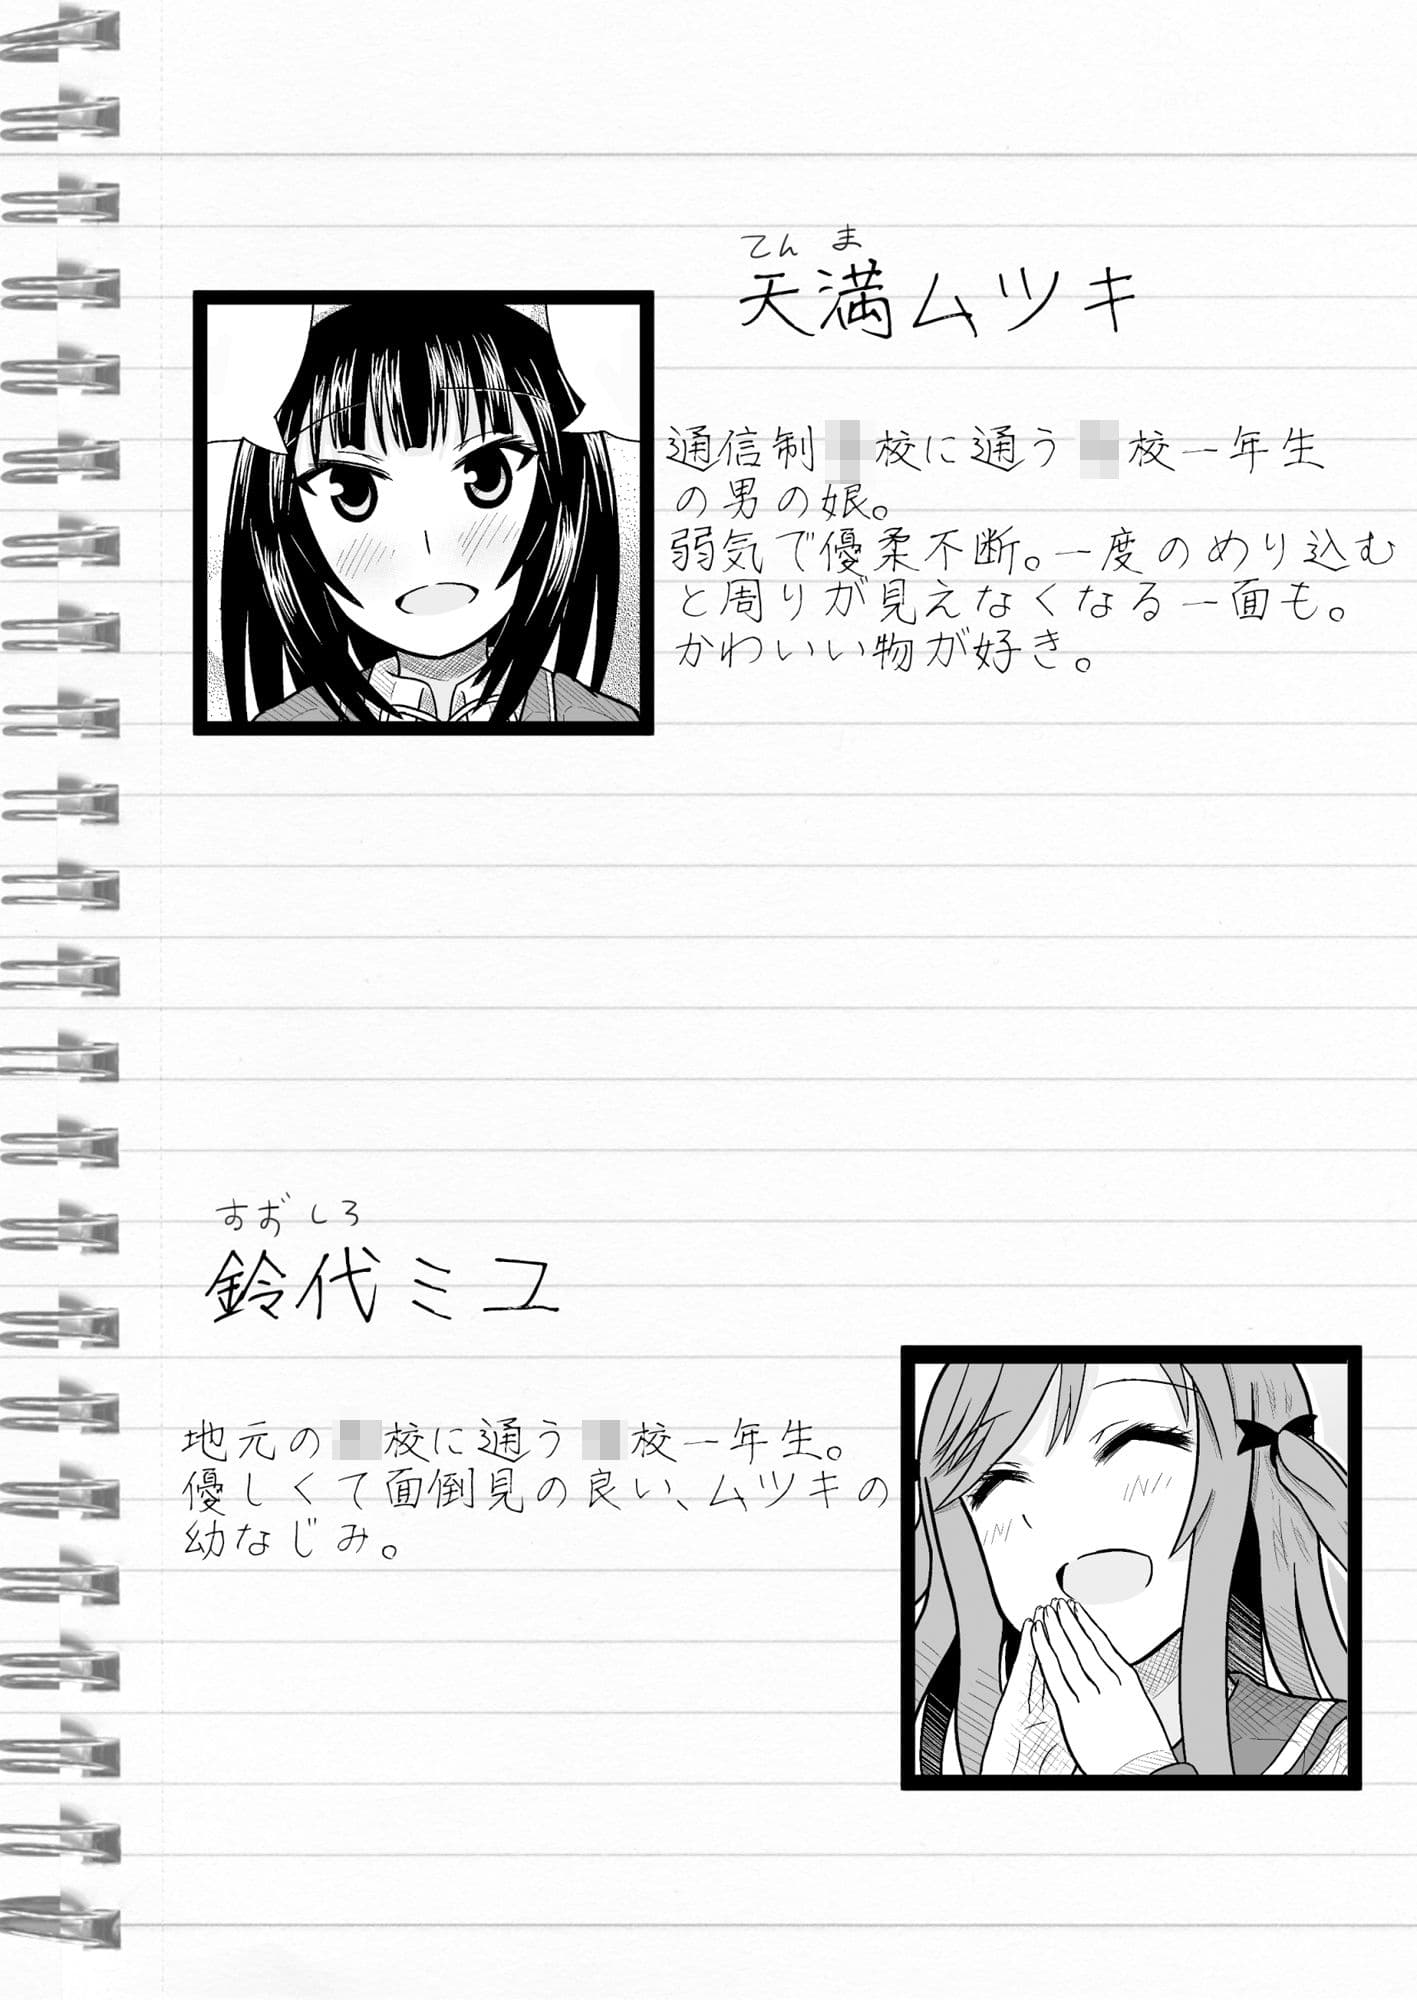 てんま
天満ムツキ
通信制 校に通う 校一年生
の男の娘。
弱気で優柔不断。一度のめり込む
と周りが見えなくなる一面も。
かわいい物が好き。
すずしろ
鈴代ミユ
地元の 校に通う 校一年生。
優しくて面倒見の良い、ムツキの
幼なじみ。